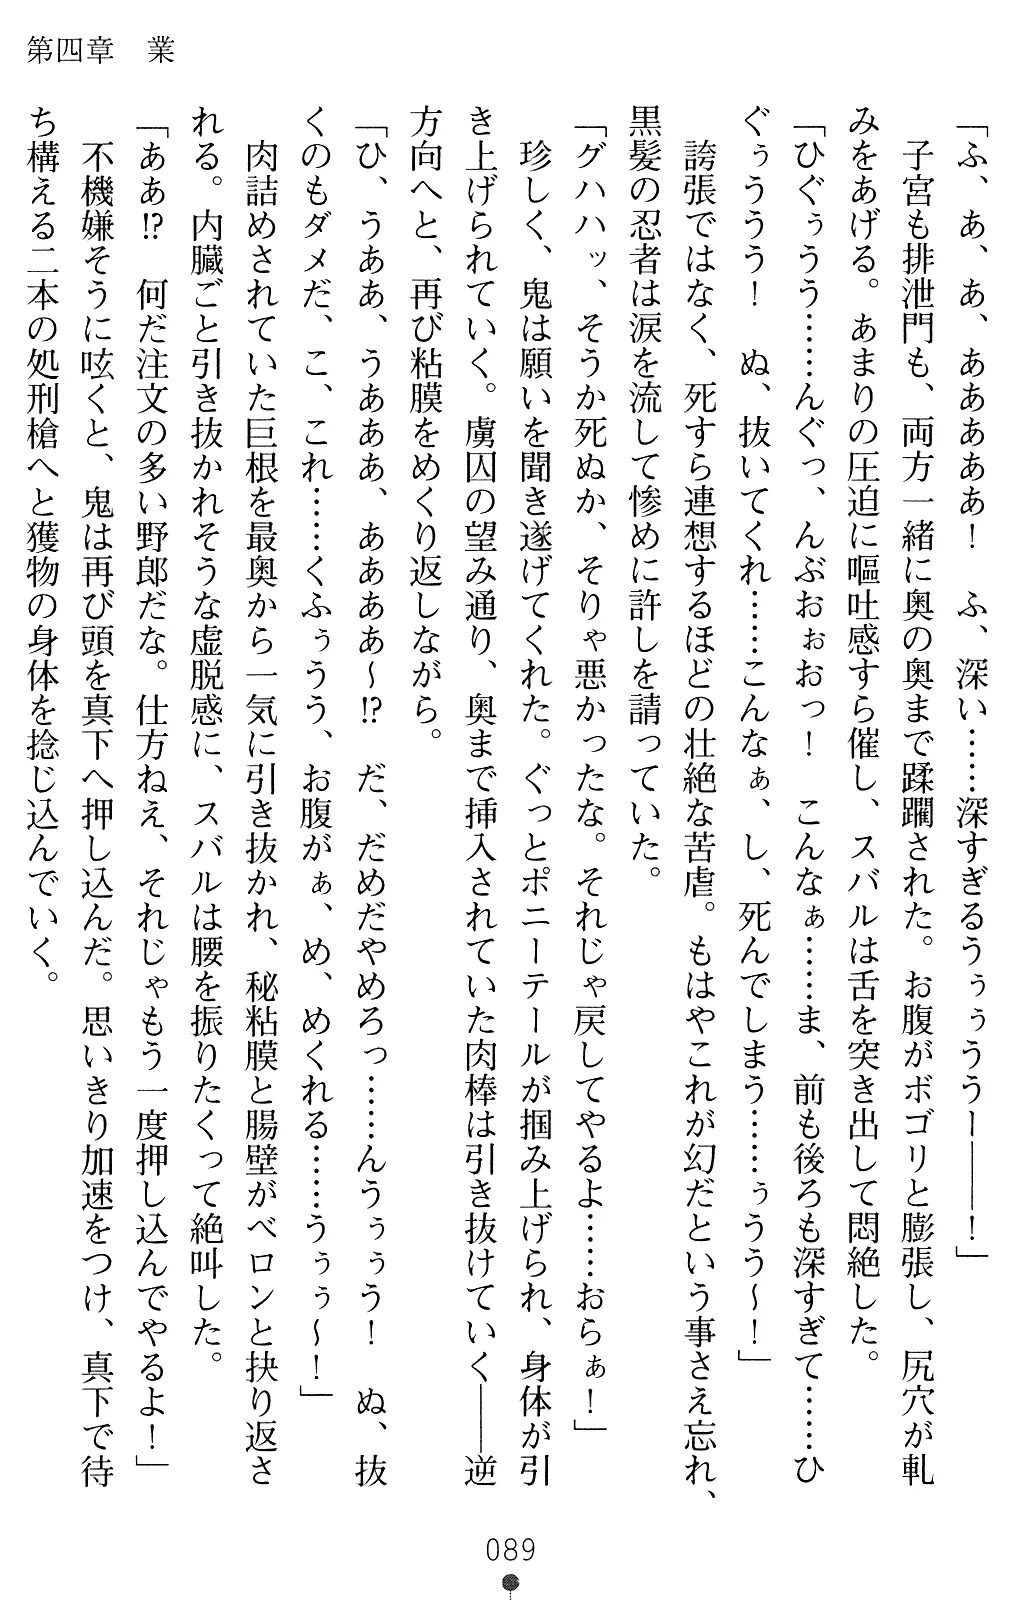 第四章　業
「ふ、あ、あ、ああああ！　ふ、深い……深すぎるうぅぅうう――！」
　子宮も排泄門も、両方一緒に奥の奥まで蹂躙された。お腹がボゴリと膨張し、尻穴が軋
みをあげる。あまりの圧迫に嘔吐感すら催し、スバルは舌を突き出して悶絶した。
「ひぐぅうう……んぐっ、んぶおぉおっ！　こんなぁ……ま、前も後ろも深すぎて……ひ
ぐぅううう！　ぬ、抜いてくれ……こんなぁ、し、死んでしまう……ぅうう～！」
　誇張ではなく、死すら連想するほどの壮絶な苦虐。もはやこれが幻だという事さえ忘れ、
黒髪の忍者は涙を流して惨めに許しを請っていた。
「グハハッ、そうか死ぬか、そりゃ悪かったな。それじゃ戻してやるよ……おらぁ！」
　珍しく、鬼は願いを聞き遂げてくれた。ぐっとポニーテールが掴み上げられ、身体が引
き上げられていく。虜囚の望み通り、奥まで挿入されていた肉棒は引き抜けていく――逆
方向へと、再び粘膜をめくり返しながら。
「ひ、うああ、うああぁ、ああああ～!?　だ、だめだやめろっ……んうぅぅう！　ぬ、抜
くのもダメだ、こ、これ……くふぅうう、お腹がぁ、め、めくれる……うぅぅ～！」
　肉詰めされていた巨根を最奥から一気に引き抜かれ、秘粘膜と腸壁がベロンと抉り返さ
れる。内臓ごと引き抜かれそうな虚脱感に、スバルは腰を振りたくって絶叫した。
「ああ!?　何だ注文の多い野郎だな。仕方ねえ、それじゃもう一度押し込んでやるよ！」
　不機嫌そうに呟くと、鬼は再び頭を真下へ押し込んだ。思いきり加速をつけ、真下で待
ち構える二本の処刑槍へと獲物の身体を捻じ込んでいく。
089